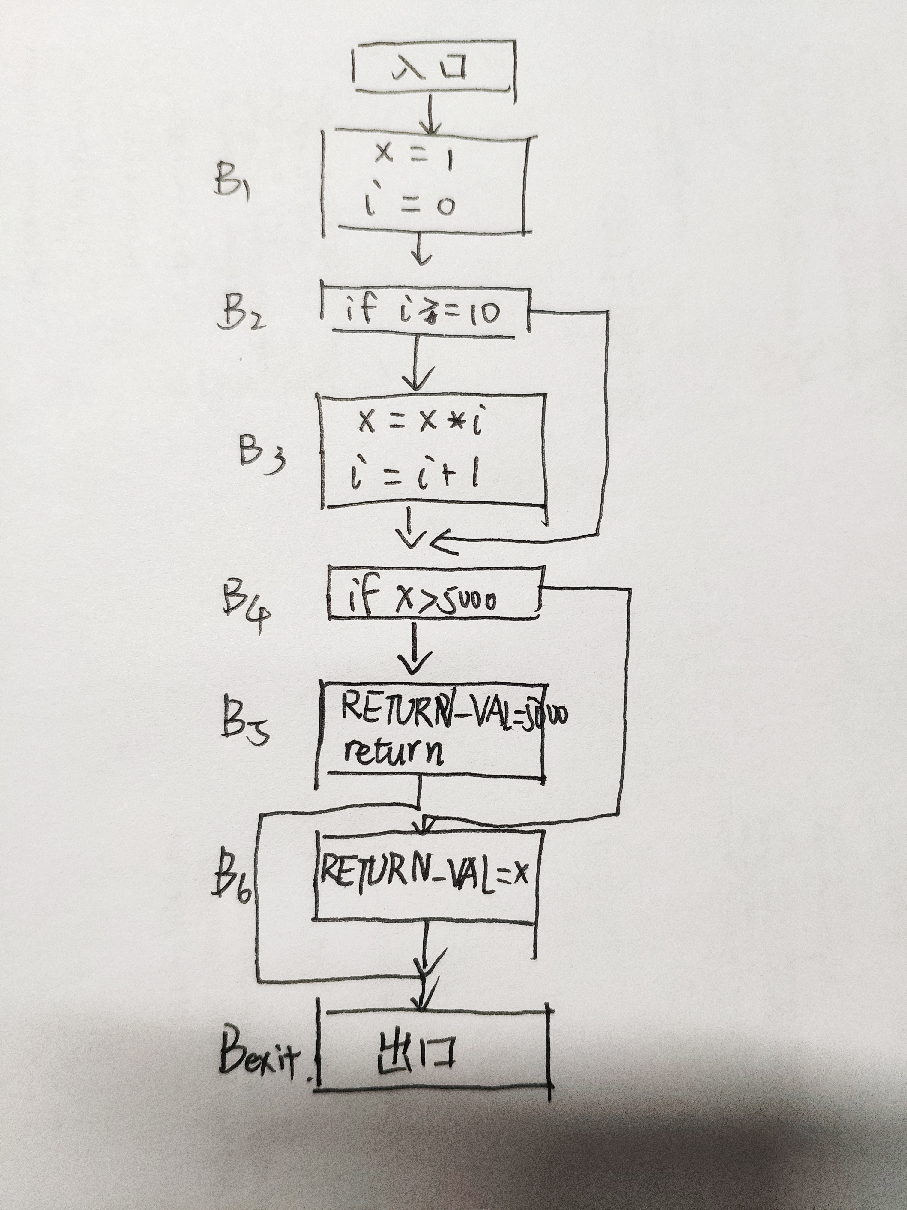 入口
B1
x = 1
i = 0
B2
if i>=10
B3
x = x * i
i = i + 1
B4
if x>5000
B5
RETURN_VAL=5000
return
B6
RETURN_VAL=x
Bexit.
出口